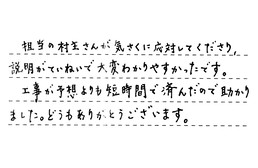 担当の村主さんが気さくに応対してくださり、
説明がていねいで大変わかりやすかったです。
工事が予想よりも短時間で済んだので助かり
ました。どうもありがとうございます。